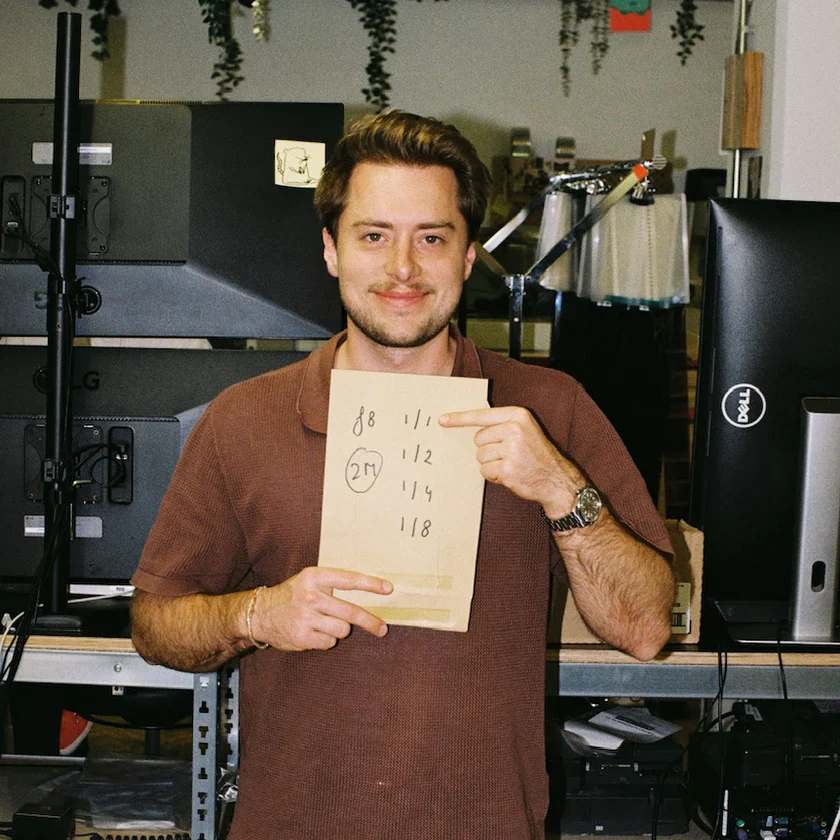 f8 1/1
2M 1/2
1/4
1/8
LG
DELL